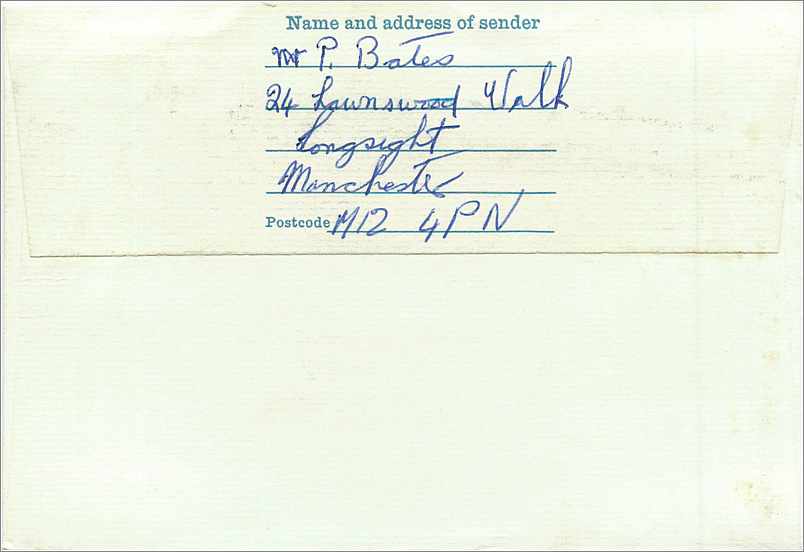 Name and address of sender
Mr P. Bates
24 Lawnswood Walk
Longsight
Manchester
Postcode M12 4PN